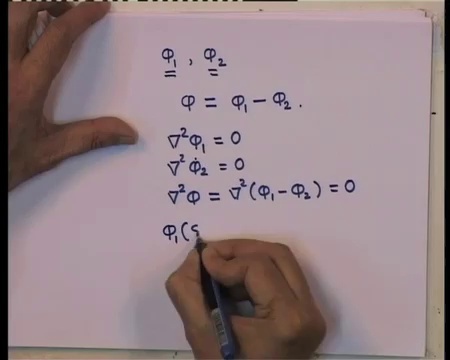 φ₁ , φ₂
φ = φ₁ − φ₂ .
∇²φ₁ = 0
∇²φ₂ = 0
∇²φ = ∇²(φ₁ − φ₂) = 0
φ₁(s